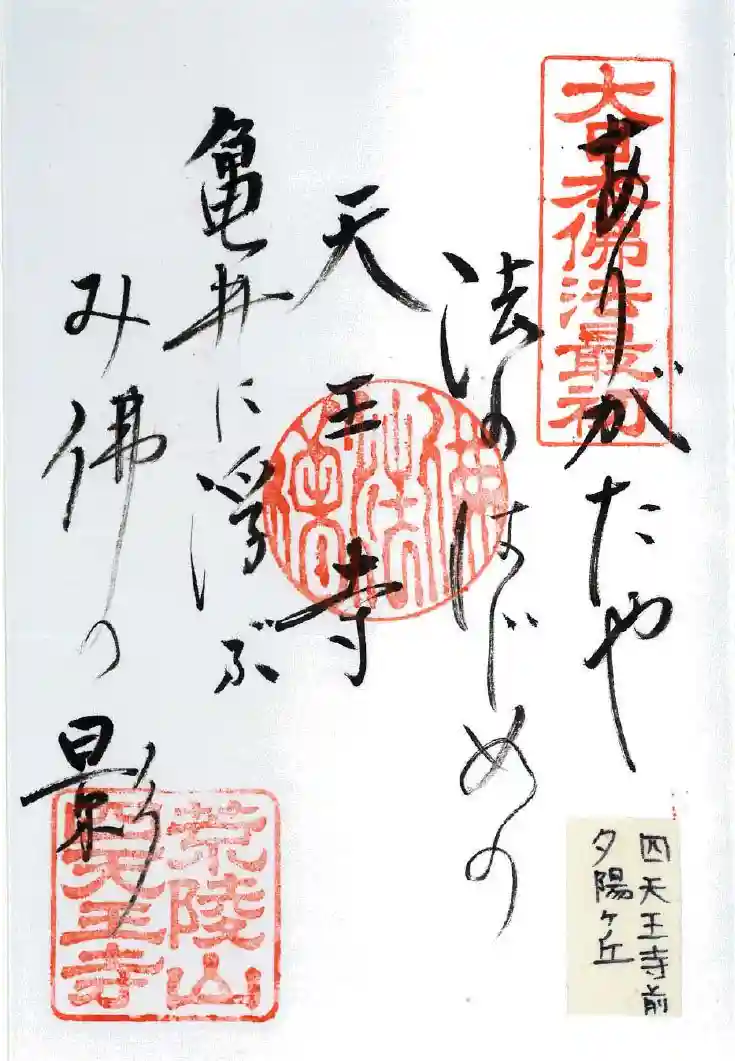 大日本佛法最初
ありがたや
法のはじめの
天王寺
亀井に浮ぶ
み佛の影
佛法僧寶
荒陵山
四天王寺
四天王寺前
夕陽ヶ丘